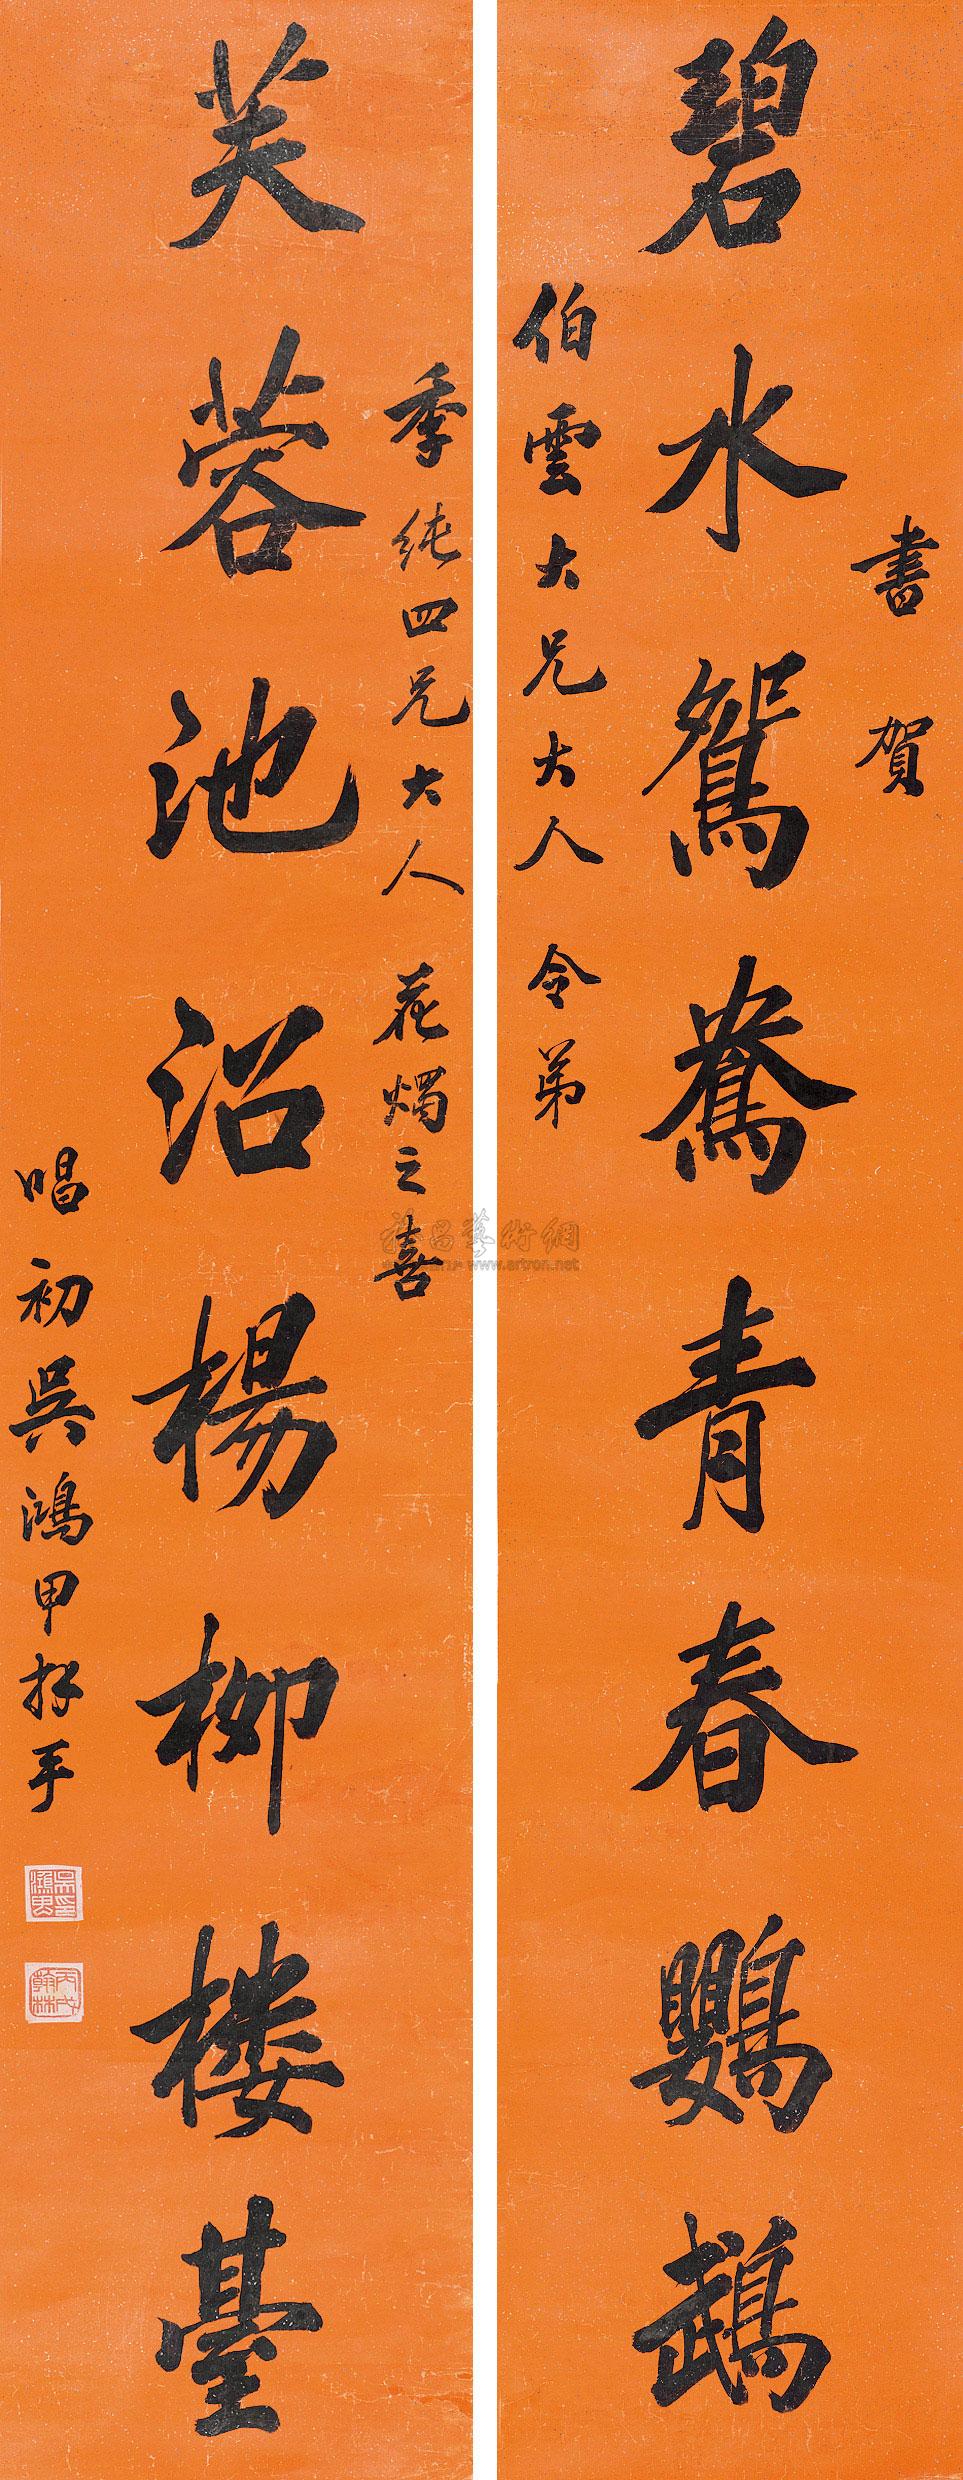 書賀
碧水鴛鴦青春鸚鵡
伯雲大兄大人令弟
季純四兄大人花燭之喜
芙蓉池沼楊柳楼臺
唱初吳鴻甲拜手
丙戌翰林
雅昌藝術網
www.artron.net